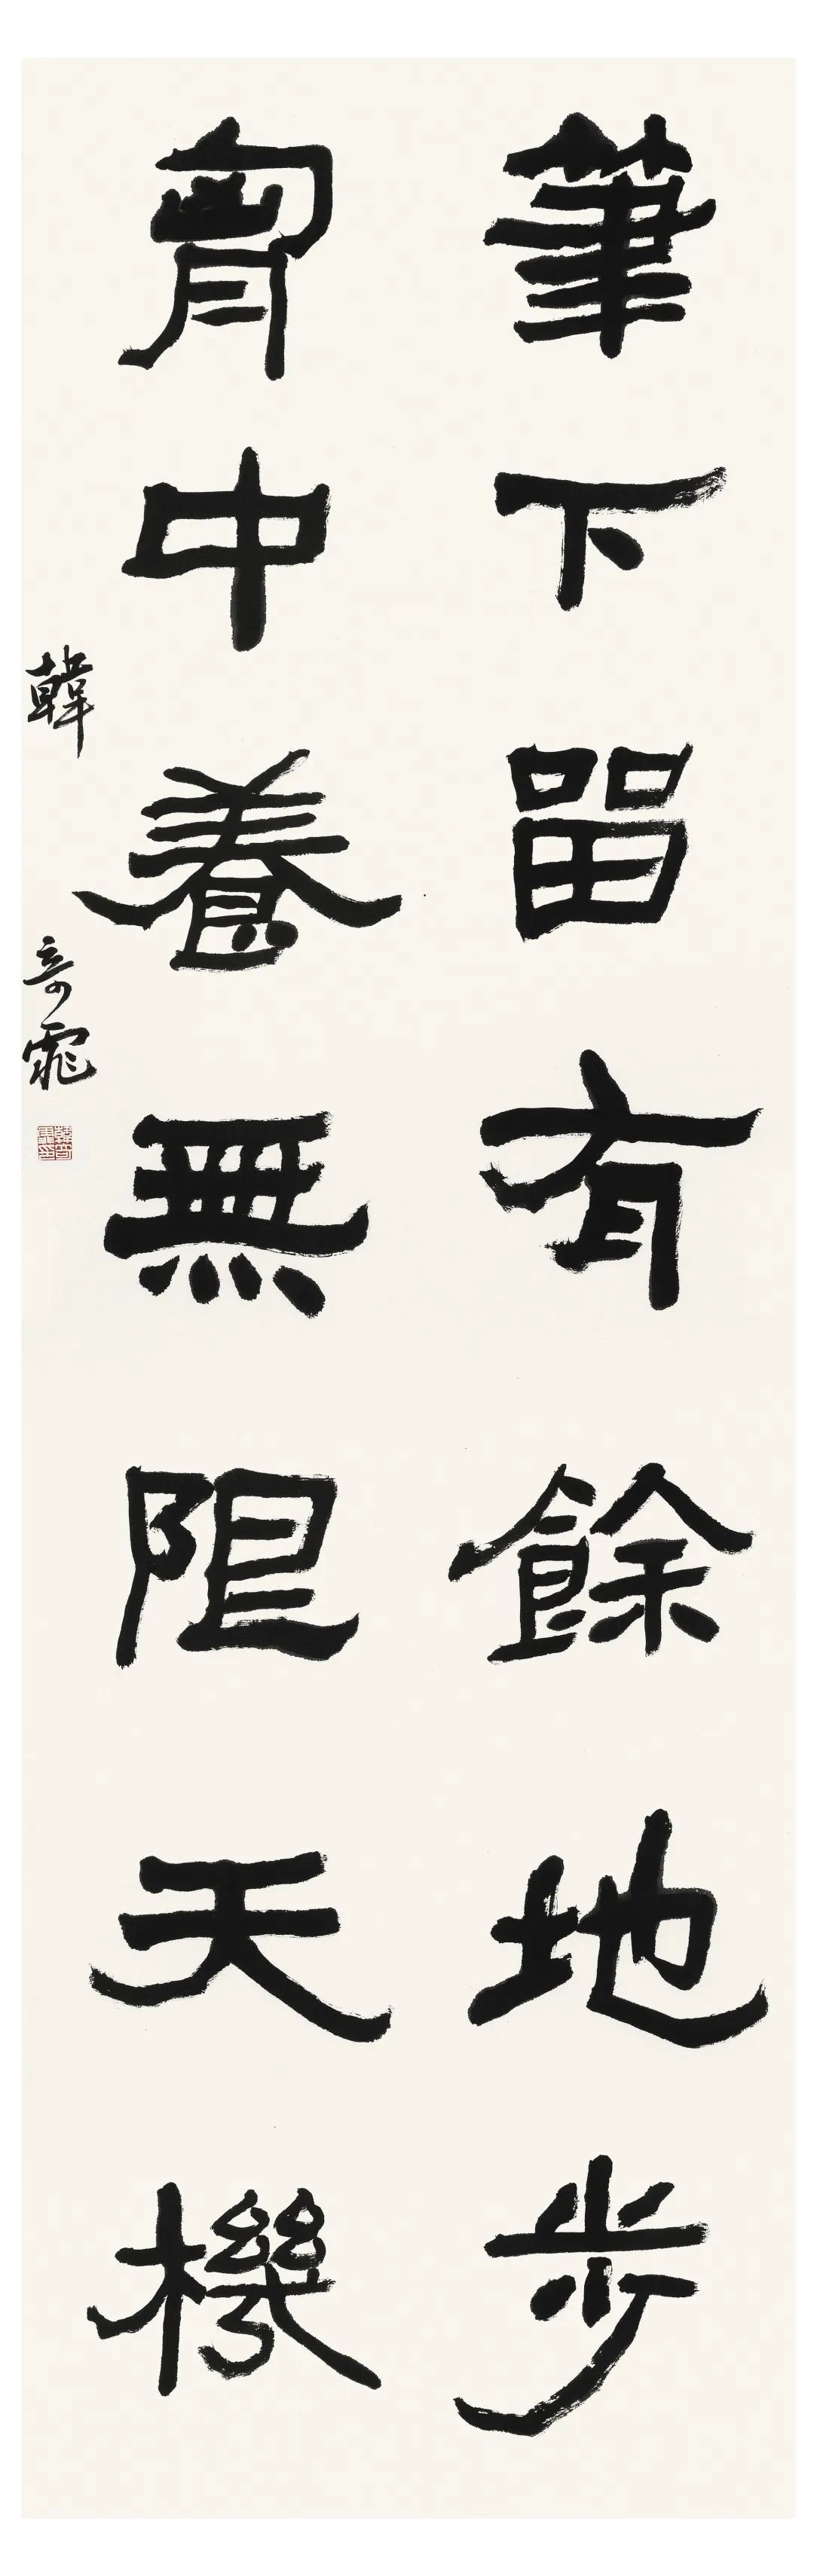 筆下留有餘地步
胷中養無限天機
韓奇霏